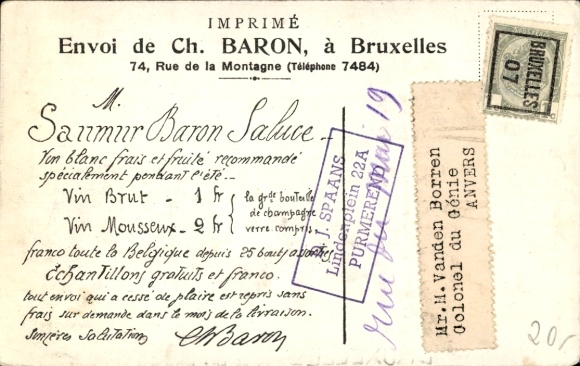 IMPRIMÉ
Envoi de Ch. BARON, à Bruxelles
74, Rue de la Montagne (Téléphone 7484)
M.
Saumur Baron Saluce
Vin blanc frais et fruité recommandé
spécialement pendant l'été
Vin Brut - 1 fr
Vin Mousseux - 2 fr
la grde bouteille
de champagne
verre compris
franco toute la Belgique depuis 25 bouts assorties
Échantillons gratuits et franco.
tout envoi qui a cessé de plaire est repris sans
frais sur demande dans le mois de la livraison.
Sincères Salutations
Ch Baron
J. SPAANS
Lindenplein 22A
PURMEREND
rue du 19
Mr.M.Vanden Borren
Colonel du Génie
ANVERS
BRUXELLES
07
20,-